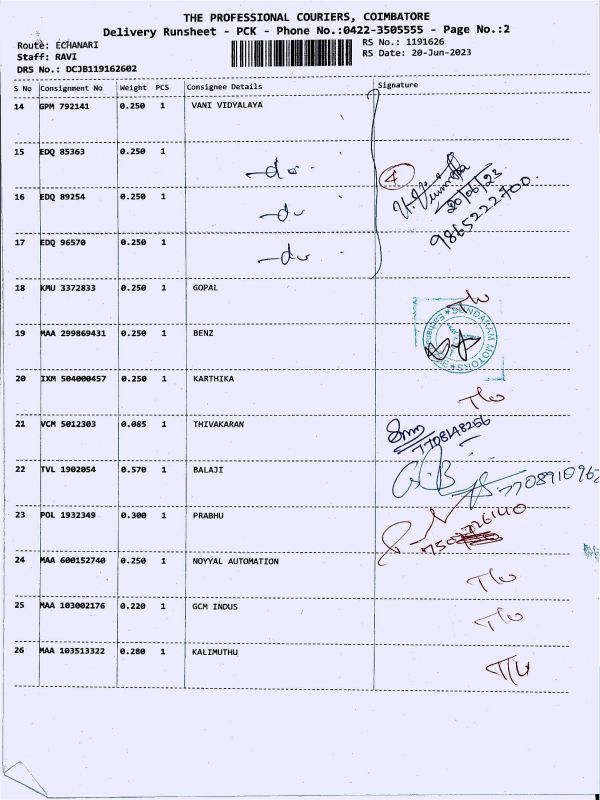 THE PROFESSIONAL COURIERS, COIMBATORE
Delivery Runsheet - PCK - Phone No.:0422-3505555 - Page No.:2
Route: ECHANARI
Staff: RAVI
DRS No.: DCJB119162602
RS No.: 1191626
RS Date: 20-Jun-2023
S No Consignment No Weight PCS Consignee Details Signature
14 GPM 792141 0.250 1 VANI VIDYALAYA
15 EDQ 85363 0.250 1 -do- 4
20/06/23
16 EDQ 89254 0.250 1 -do
9865222700
17 EDQ 96570 0.250 1 -do
18 KMU 3372833 0.250 1 GOPAL
SUNDARAM MOTORS
19 MAA 299869431 0.250 1 BENZ
20 IXM 504000457 0.250 1 KARTHIKA
21 VCM 5012303 0.085 1 THIVAKARAN
7708148266
22 TVL 1902054 0.570 1 BALAJI
770891096
23 POL 1932349 0.300 1 PRABHU
24 MAA 600152740 0.250 1 NOYYAL AUTOMATION
25 MAA 103002176 0.220 1 GCM INDUS
26 MAA 103513322 0.280 1 KALIMUTHU